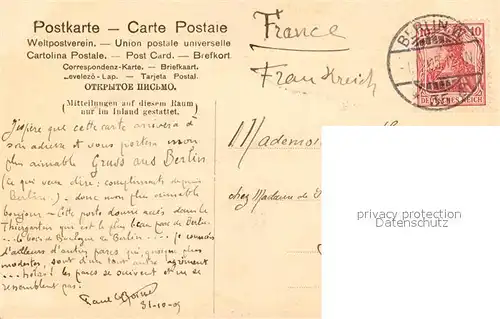 Postkarte – Carte Postale
Weltpostverein. – Union postale universelle
Cartolina Postale. – Post Card. – Brefkort
Correspondenz-Karte. – Briefkaart.
Levelező-Lap. – Tarjeta Postal.
ОТКРЫТОЕ ПИСЬМО.
(Mitteilungen auf diesem Raum
nur im Inland gestattet.)
France
Frankreich
BERLIN.W.
10
DEUTSCHES REICH
J'espère que cette carte arrivera à
son adresse et vous portera mon
plus aimable Gruss aus Berlin
(ce qui veut dire; compliments depuis
Berlin). – donc mon plus aimable
bonjour – Cette porte donne accès dans le
Thiergarten qui est le plus beau parc de Berlin
... le bois de Boulogne de Berlin ... je connais
d'ailleurs d'autres parcs qui quoique plus
modestes sont d'un tout autre agrément
... hélas! les parcs se suivent et ne se
ressemblent pas.
Paul
31-10-05
Mademoi
chez Madame de
privacy protection
datenschutz